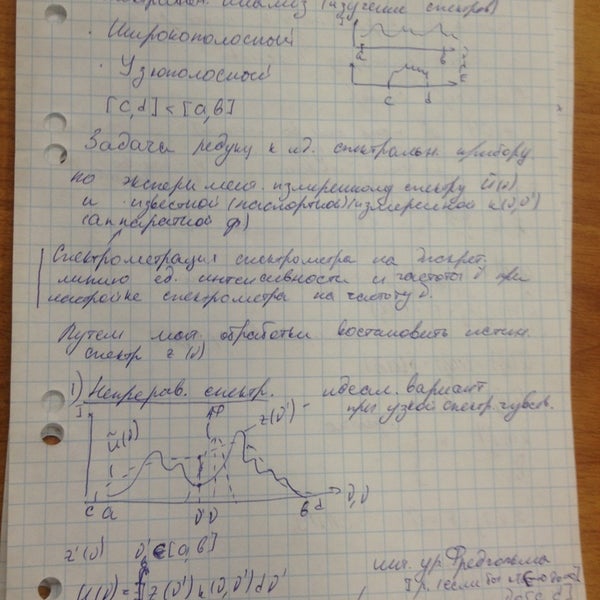 анализ (изучение спектров)
· Широкополосный
· Узкополосный
[c,d] < [a,b]
a b c d E
Задача редукц к ид. спектральн. прибору
по эксперимент. измеренному спектру ũ(ν)
и известной (паспортной) (измеренной k(ν,ν')
(аппаратной ф)
Спектрометрация спектрометра на дискрет.
линию ед. интенсивности и частоты ν' при
настройке спектрометра на частоту ν.
Путем мат. обработки востановить истин.
спектр z(ν)
1) Непрерыв. спектр. - идеал. вариант
при узкой спектр. чувств.
I ũ(ν) z(ν')
c a ν' ν b d ν, ν'
z'(ν) ν', ∈[a,b]
инт. ур. Фредгольма
u(ν) = ∫ z(ν') k(ν,ν') dν'
I р. (если